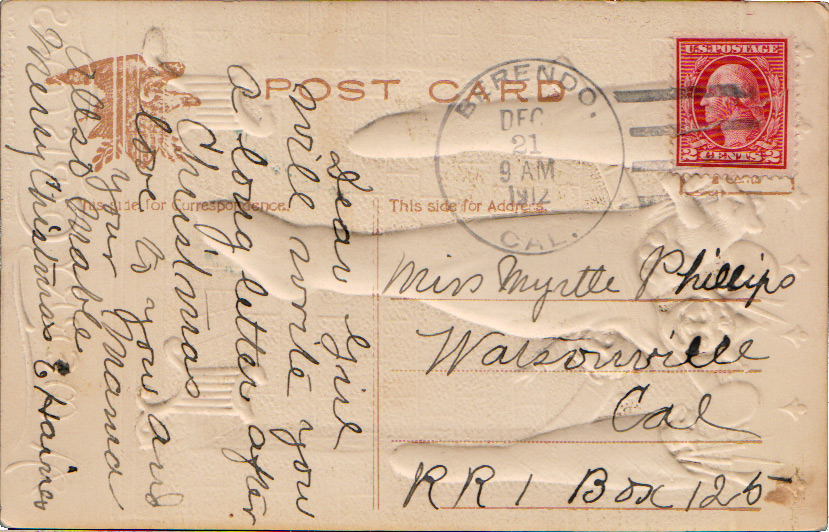 POST CARD
This side for Correspondence.
This side for Address.
BERENDO.
DEC
21
9 AM
1912
CAL.
U.S. POSTAGE
2 CENTS 2
Dear Girl
Will write you
a long letter after
Christmas
love to you and
your Mama
Also Mable.
Merry Christmas E Haines
Miss Myrtle Phillips
Watsonville
Cal
RR 1 Box 125